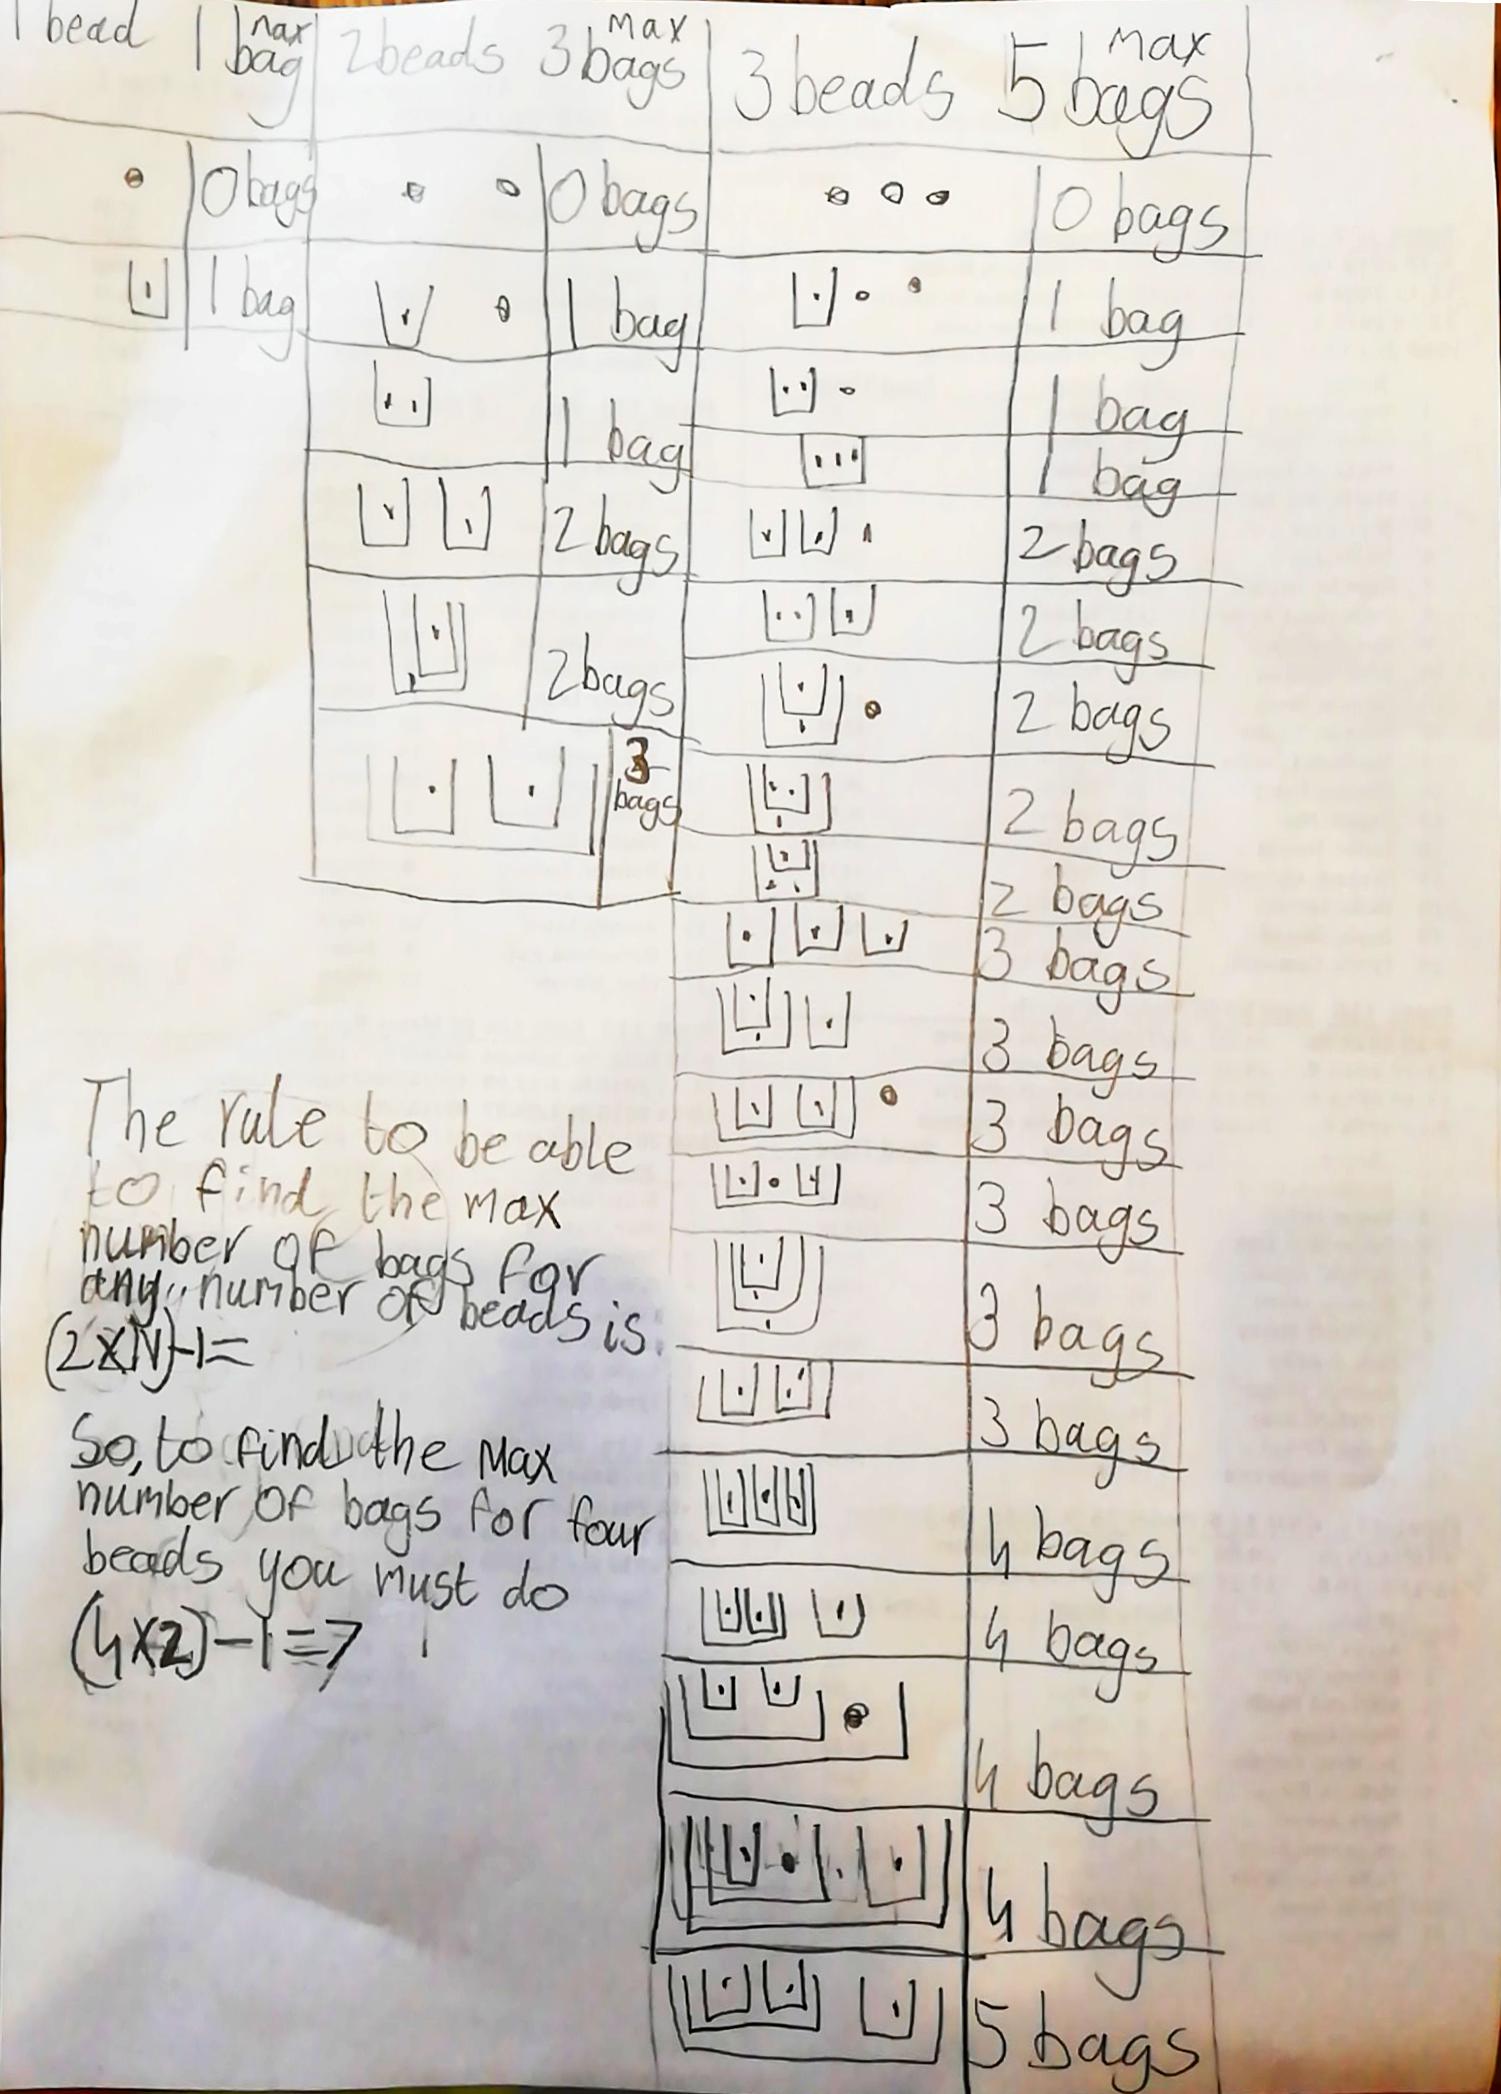 1 bead 1 max bag
2 beads 3 max bags
3 beads 5 max bags
0 bags
1 bag
0 bags
1 bag
1 bag
2 bags
2 bags
3 bags
0 bags
1 bag
1 bag
1 bag
2 bags
2 bags
2 bags
2 bags
2 bags
3 bags
3 bags
3 bags
3 bags
3 bags
3 bags
4 bags
4 bags
4 bags
4 bags
5 bags
The rule to be able
to find the max
number of bags for
any number of beads is
(2xN)-1=
So, to find the max
number of bags for four
beads you must do
(4x2)-1=7